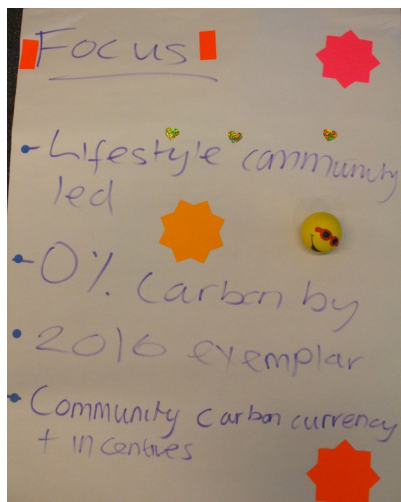 Focus
• Lifestyle community
led
• 0% carbon by
• 2016 exemplar
• Community carbon currency
+ incentives